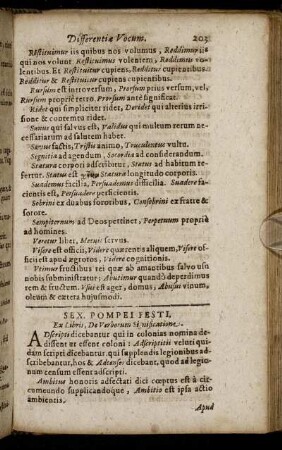 Differentiæ Vocum. 203
Restituimur iis quibus nos volumus, Reddimur iis
qui nos volunt. Restituimus volentem, Reddimus vo-
lentibus. Et Restituitur cupiens, Redditur cupientibus.
Redditur & Restituitur cupiens cupientibus.
Rursum est introversum, Prorsum prius versum, vel,
Rursum propriè retro. Prorsum ante significat.
Ridet qui simpliciter ridet, Deridet qui alterius irri-
sione & contemtu ridet.
Sanus qui salvus est, Validus qui multum rerum ne-
cessariarum ad salutem habet.
Senectus factis, Tristis animo, Truculentus vultu.
Segnitia ad agendum, Socordia ad considerandum.
Statura corpori adscribitur, Status ad habitum re-
fertur. Status est Statura longitudo corporis.
Suademus facilia, Persuademus difficilia. Suadere fa-
cientis est, Persuadere perficientis.
Sobrini ex duabus sororibus, Consobrini ex fratre &
sorore.
Sempiternum ad Deos pertinet, Perpetuum propriè
ad homines.
Veretur liber, Metuit servus.
Visere est officii, Videre quærentis alicquem, Visere of-
ficii est apud ægrotos, Videre cognitionis.
Vtimur frustibus rei quæ sine damno abusivo usu
nobis subministratur, Abutimur quando depræ­dimus
rem & fructum. Usus est ager, domus, Abusus vinum,
oleum & cætera hujusmodi.
SEX. POMPEI FESTI,
Ex Libris, De Verborum Significatione.
ADscripti dicebantur qui in colonias nomina de-
dissent ut essent coloni: Adscriptitii veluti qui-
dam scripti dicebantur, qui supplendis legionibus ad-
scribebantur, hos & Adcensos dicebant, quod ad legio-
num censum essent adscripti.
Ambitus honoris adfectati dici cœptus est à cir-
cumeundo supplicandoque, Ambitio est ipsa actio
ambientis.
Apud